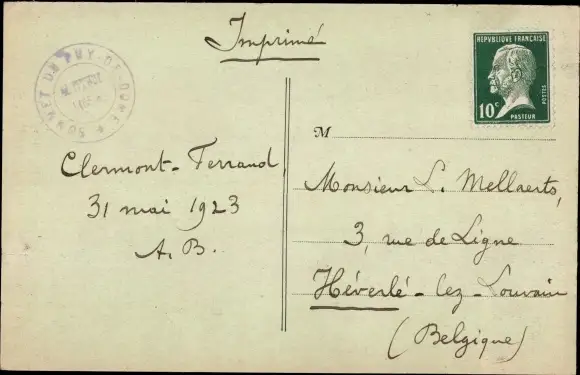 Imprimé
SOMMET DU PUY-DE-DOME
REPUBLIQUE FRANÇAISE
10c
POSTES
PASTEUR
M
Clermont-Ferrand
31 mai 1923
A. B.
Monsieur L. Mellaerts,
3, rue de Ligne
Héverlé-lez-Louvain
(Belgique)